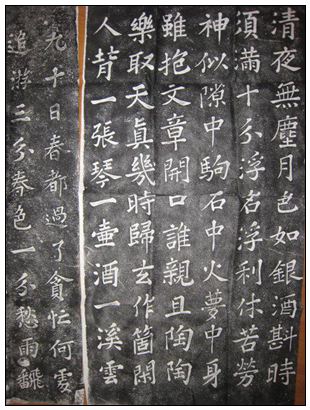 清夜無塵月色如銀酒斟時
須滿十分浮名浮利休苦勞
神似隙中駒石中火夢中身
雖抱文章開口誰親且陶陶
樂取天真幾時歸去作箇閑
人背一張琴一壺酒一溪雲
九十日春都過了貪忙何處
追游三分春色一分愁雨飜